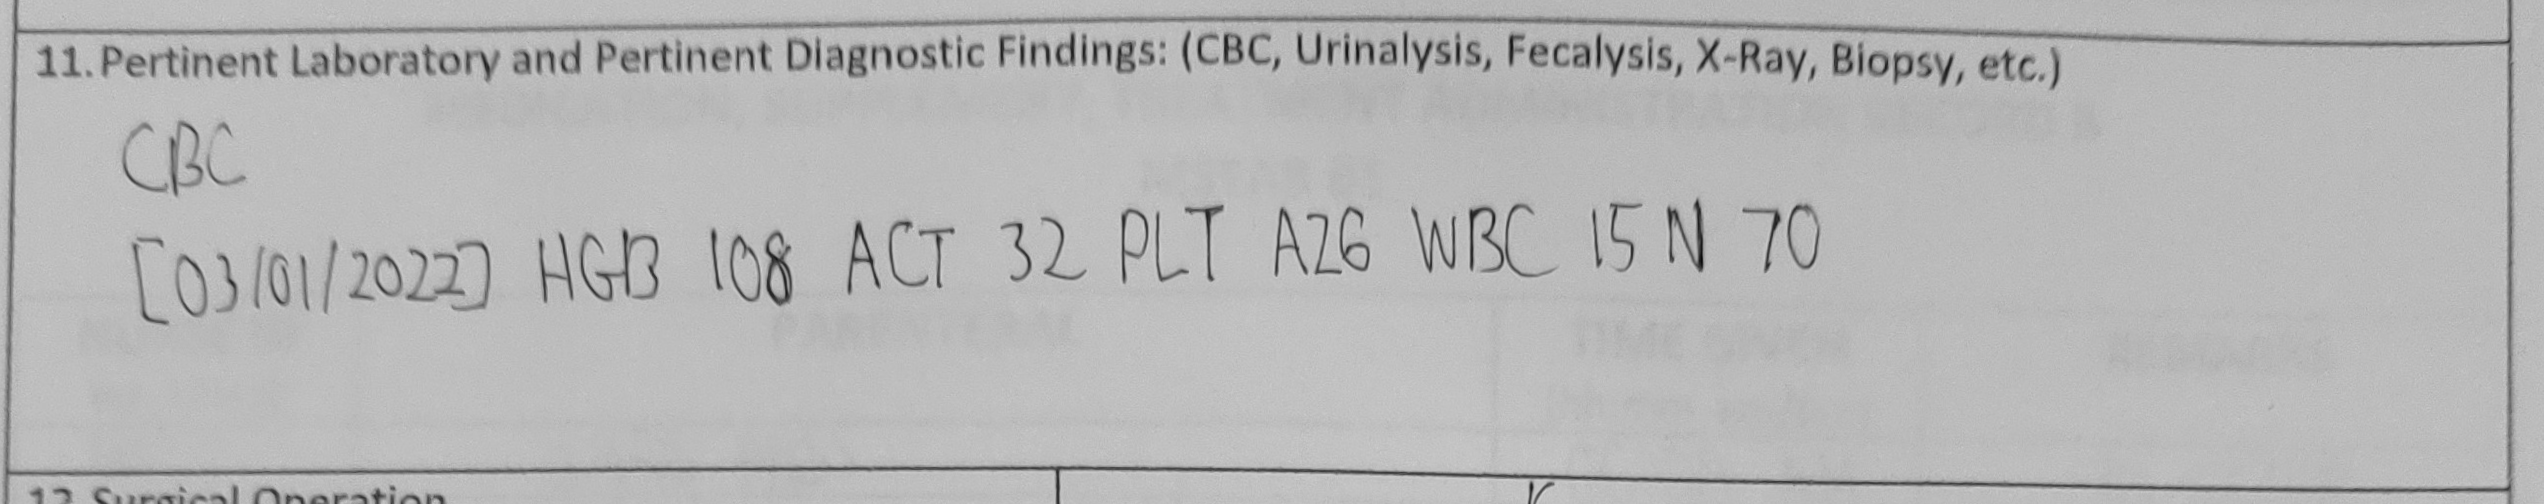 11. Pertinent Laboratory and Pertinent Diagnostic Findings: (CBC, Urinalysis, Fecalysis, X-Ray, Biopsy, etc.)
CBC
[03/01/2022] HGB 108 ACT 32 PLT A26 WBC 15 N 70
12. Surgical Operation